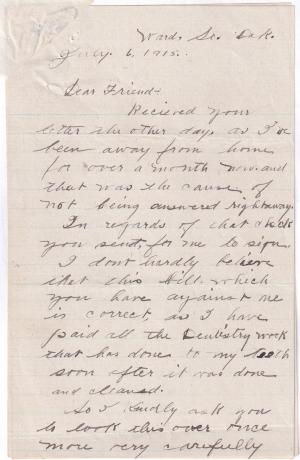 Ward, So. Dak.
July. 6, 1915.
Dear Friend:-
Recieved your
letter the other day, as I've
been away from home
for over a month now. and
that was the cause of
not being answered rightaway.
In regards of that check
you send, for me to sign.
I dont hardly believe
that this bill. which
you have against me
is correct, as I have
paid all the Dentistry work
that has done to my teeth
soon after it was done
and cleaned.
So I kindly ask you
to look this over once
more very carefully